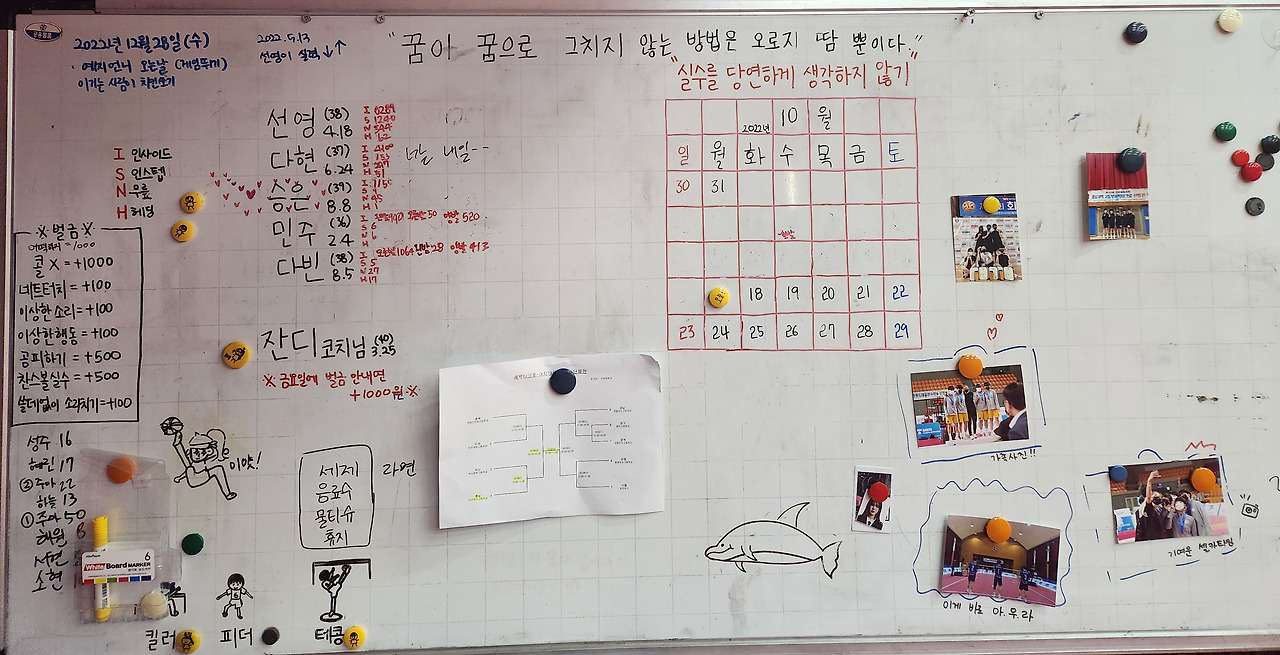 2022년 12월 28일 (수)
· 예지언니 오는날 (게임뚜기)
이기는 사람이 치킨쏘기
2022. 5.13
선영이 실력 ↓↑
"꿈이 꿈으로 그치지 않는 방법은 오로지 땀 뿐이다."
"실수를 당연하게 생각하지 않기"
I 인사이드
S 인스텝
N 무릎
H 헤딩
선영 (38)
4.18
다현 (37)
6.24
너날 내일--
승은 (39)
8.8
민주 (36)
2.4
다빈 (38)
8.5
잔디 코치님 (40)
3.25
※ 금요일에 벌금 안내면
+1000원 ※
※ 벌금 ※
콜 X = +1000
네트터치 = +100
이상한 소리 = +100
이상한 행동 = +100
공피하기 = +500
찬스볼실수 = +500
쓸데없이 소리치기 = +100
2022년 10월
일 월 화 수 목 금 토
30 31
18 19 20 21 22
23 24 25 26 27 28 29
성주 16
혜린 17
② 주아 22
하늘 13
① 주아 50
해원 8
서연
소현
White Board MARKER
6
이얏!
세제
음료수
물티슈
휴지
라면
킬러
피더
테콩
가족사진!!
이게 바로 아.우.라
기여운 셀카타임